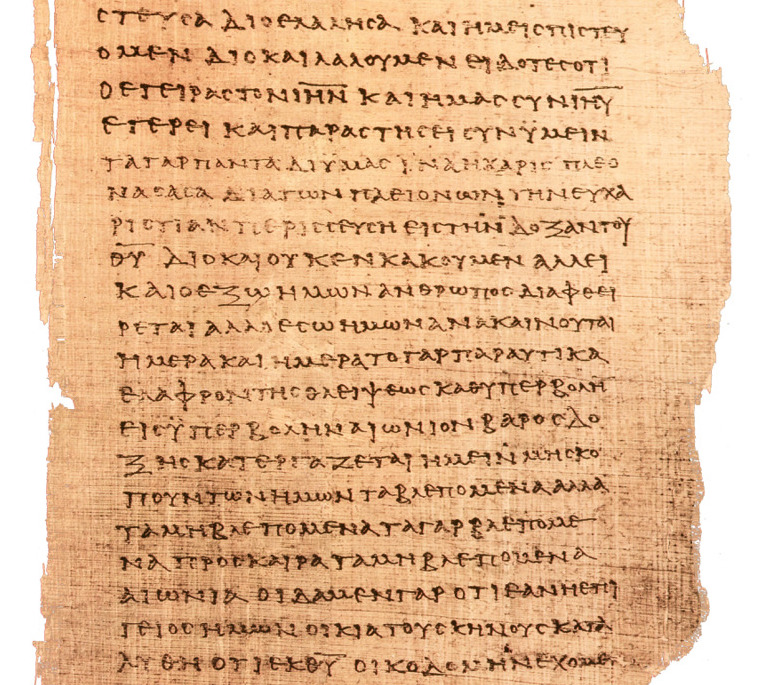 ϲτευϲα διο ελαληϲα και ημειϲ πιϲτευ
ομεν διο και λαλουμεν ειδοτεϲ οτι
ο εγειραϲ τον ι̅η̅ν̅ και ημαϲ ϲυν ι̅η̅υ̅
εγερει και παραϲτηϲει ϲυν ϋμειν
τα γαρ παντα δι ϋμαϲ ϊνα η χαριϲ πλεο
ναϲαϲα δια των πλειονων την ευχα
ριϲτιαν περιϲϲευϲη ειϲ την δοξαν του
θ̅υ̅ διο και ουκ ενκακουμεν αλλ ει
και ο εξω ημων ανθρωποϲ διαφθει
ρεται αλλ ο εϲω ημων ανακαινουται
ημερα και ημερα το γαρ παραυτικα
ελαφρον τηϲ θλειψεωϲ καθ υπερβολην
ειϲ ϋπερβολην αιωνιον βαροϲ δο
ξηϲ κατεργαζεται ημειν μη ϲκο
πουντων ημων τα βλεπομενα αλλα
τα μη βλεπομενα τα γαρ βλεπομε
να προϲκαιρα τα μη βλεπομενα
αιωνια οιδαμεν γαρ οτι εαν η επι
γειοϲ ημων οικια του ϲκηνουϲ κατα
λυθη οτι εκ θ̅υ̅ οικοδομην εχομεν